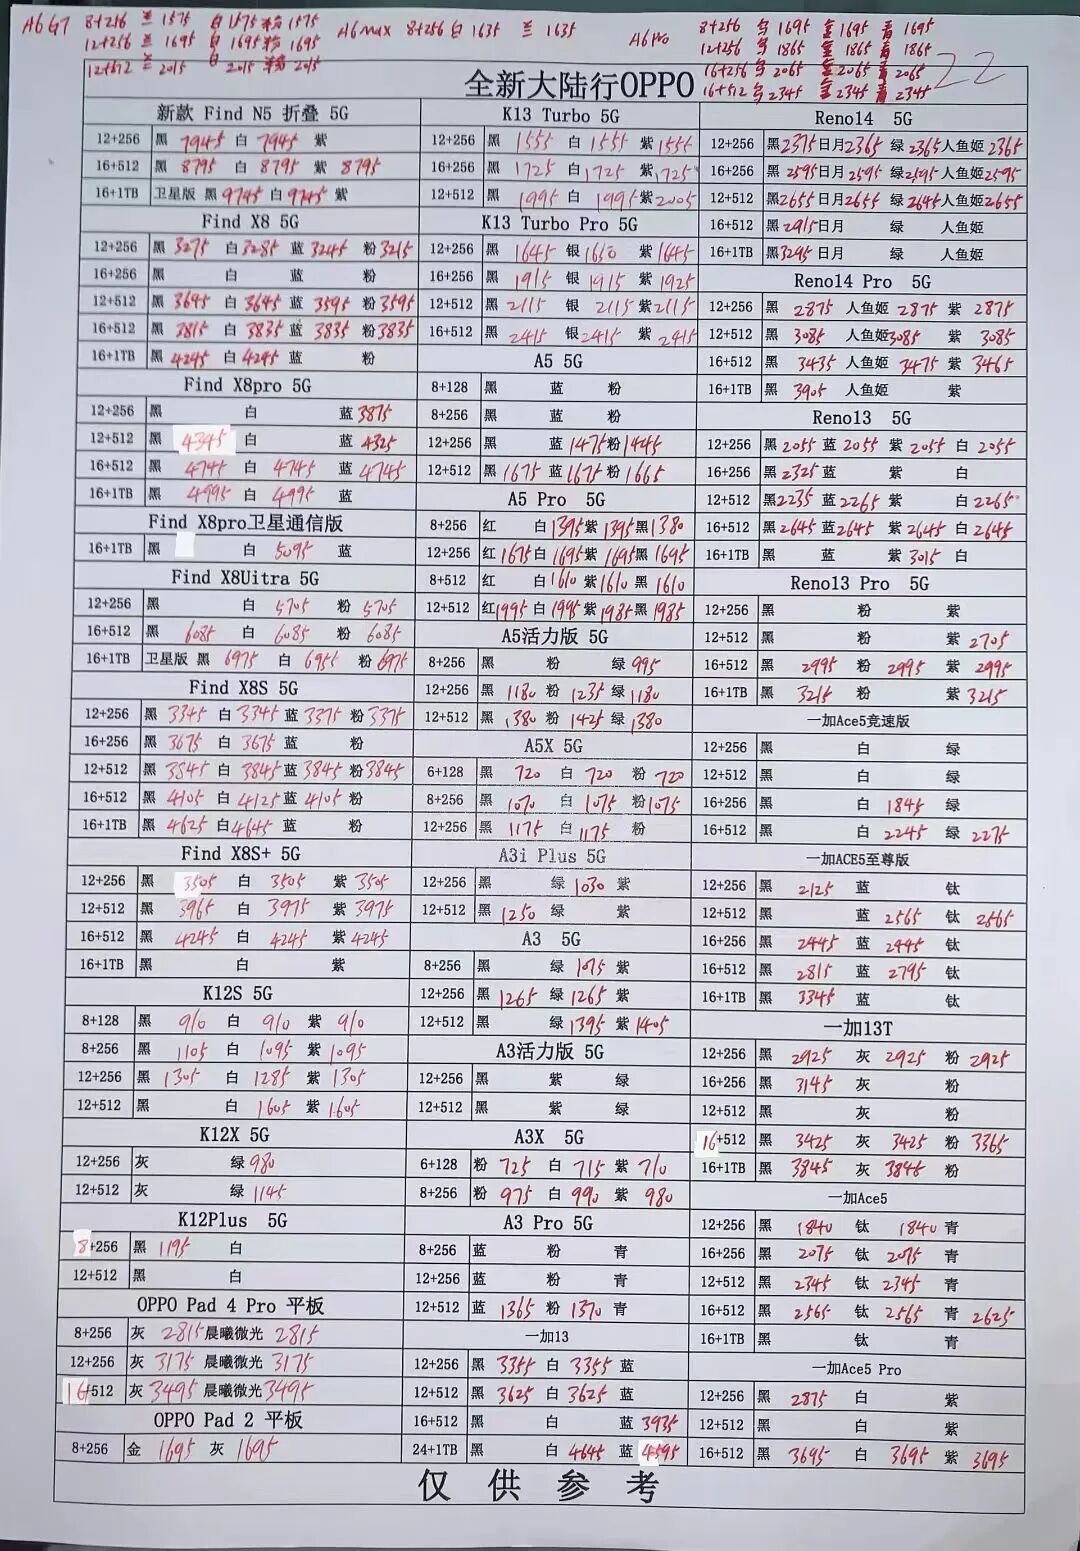 A6GT 8+256 兰 1575 白1575 粉1575
12+256 兰 1695 白1695 粉1695
12+512 兰 2015 白 2015 粉2015
A6max 8+256 白 1635 兰 1635
A6Pro 8+256 1695 金 1695 青 1695
12+256 1865 金 1865 青 1865
16+256 2065 金 2065 青 2065
16+512 2345 金 2345 青 2345
22
全新大陆行OPPO
新款 Find N5 折叠 5G
12+256 黑 7945 白 7945 紫
16+512 黑 8795 白 8795 紫 8795
16+1TB 卫星版 黑 9745 白 9745 紫
Find X8 5G
12+256 黑 3275 白 3285 蓝 3245 粉 3215
16+256 黑 白 蓝 粉
12+512 黑 3645 白 3645 蓝 3595 粉 3595
16+512 黑 3815 白 3835 蓝 3835 粉 3835
16+1TB 黑 4245 白 4245 蓝 粉
Find X8pro 5G
12+256 黑 白 蓝 3875
12+512 黑 4345 白 蓝 4325
16+512 黑 4745 白 4745 蓝 4745
16+1TB 黑 4995 白 4995 蓝
Find X8pro卫星通信版
16+1TB 黑 白 5095 蓝
Find X8Uitra 5G
12+256 黑 白 5705 粉 5705
16+512 黑 6085 白 6085 粉 6085
16+1TB 卫星版 黑 6975 白 6955 粉 6975
Find X8S 5G
12+256 黑 3345 白 3345 蓝 3375 粉 3375
16+256 黑 3675 白 3675 蓝 粉
12+512 黑 3845 白 3845 蓝 3845 粉 3845
16+512 黑 4105 白 4125 蓝 4105 粉
16+1TB 黑 4625 白 4645 蓝 粉
Find X8S+ 5G
12+256 黑 3505 白 3505 紫 3505
12+512 黑 3965 白 3975 紫 3975
16+512 黑 4245 白 4245 紫 4245
16+1TB 黑 白 紫
K12S 5G
8+128 黑 910 白 910 紫 910
8+256 黑 1105 白 1095 紫 1095
12+256 黑 1305 白 1285 紫 1305
12+512 黑 白 1605 紫 1605
K12X 5G
12+256 灰 绿 980
12+512 灰 绿 1145
K12Plus 5G
8+256 黑 1195 白
12+512 黑 白
OPPO Pad 4 Pro 平板
8+256 灰 2815 晨曦微光 2815
12+256 灰 3175 晨曦微光 3175
16+512 灰 3495 晨曦微光 3495
OPPO Pad 2 平板
8+256 金 1695 灰 1695
K13 Turbo 5G
12+256 黑 1555 白 1555 紫 1555
16+256 黑 1725 白 1725 紫 1725
12+512 黑 1995 白 1995 紫 2005
K13 Turbo Pro 5G
12+256 黑 1645 银 1650 紫 1645
16+256 黑 1915 银 1915 紫 1925
12+512 黑 2115 银 2115 紫 2115
16+512 黑 2415 银 2415 紫 2415
A5 5G
8+128 黑 蓝 粉
8+256 黑 蓝 粉
12+256 黑 蓝 1475 粉 1445
12+512 黑 1675 蓝 1675 粉 1665
A5 Pro 5G
8+256 红 白 1395 紫 1395 黑 1380
12+256 红 1675 白 1695 紫 1695 黑 1695
8+512 红 白 1610 紫 1610 黑 1610
12+512 红 1995 白 1995 紫 1985 黑 1985
A5活力版 5G
8+256 黑 粉 绿 995
12+256 黑 1180 粉 1235 绿 1180
12+512 黑 1380 粉 1425 绿 1380
A5X 5G
6+128 黑 720 白 720 粉 720
8+256 黑 1070 白 1075 粉 1075
12+256 黑 1175 白 1175 粉
A3i Plus 5G
12+256 黑 绿 1030 紫
12+512 黑 1250 绿 紫
A3 5G
8+256 黑 绿 1075 紫
12+256 黑 1265 绿 1265 紫
12+512 黑 绿 1395 紫 1405
A3活力版 5G
12+256 黑 紫 绿
12+512 黑 紫 绿
A3X 5G
6+128 粉 725 白 715 紫 710
8+256 粉 975 白 990 紫 980
A3 Pro 5G
8+256 蓝 粉 青
12+256 蓝 粉 青
12+512 蓝 1365 粉 1370 青
一加13
12+256 黑 3355 白 3355 蓝
12+512 黑 3625 白 3625 蓝
16+512 黑 白 蓝 3935
24+1TB 黑 白 4645 蓝 4595
Reno14 5G
12+256 黑 2375 日月 2365 绿 2365 人鱼姬 2365
16+256 黑 2595 日月 2595 绿 2595 人鱼姬 2595
12+512 黑 2655 日月 2655 绿 2645 人鱼姬 2655
16+512 黑 2915 日月 绿 人鱼姬
16+1TB 黑 3295 日月 绿 人鱼姬
Reno14 Pro 5G
12+256 黑 2875 人鱼姬 2875 紫 2875
12+512 黑 3085 人鱼姬 3085 紫 3085
16+512 黑 3435 人鱼姬 3475 紫 3465
16+1TB 黑 3905 人鱼姬 紫
Reno13 5G
12+256 黑 2055 蓝 2055 紫 2055 白 2055
16+256 黑 2325 蓝 紫 白
12+512 黑 2235 蓝 2265 紫 白 2265
16+512 黑 2645 蓝 2645 紫 2645 白 2645
16+1TB 黑 蓝 紫 3015 白
Reno13 Pro 5G
12+256 黑 粉 紫
12+512 黑 粉 紫 2705
16+512 黑 2995 粉 2995 紫 2995
16+1TB 黑 3215 粉 紫 3215
一加Ace5竞速版
12+256 黑 白 绿
12+512 黑 白 绿
16+256 黑 白 1845 绿
16+512 黑 白 2245 绿 2275
一加ACE5至尊版
12+256 黑 2125 蓝 钛
12+512 黑 蓝 2565 钛 2565
16+256 黑 2445 蓝 2445 钛
16+512 黑 2815 蓝 2795 钛
16+1TB 黑 3345 蓝 钛
一加13T
12+256 黑 2925 灰 2925 粉 2925
16+256 黑 3145 灰 粉
12+512 黑 灰 粉
16+512 黑 3425 灰 3425 粉 3365
16+1TB 黑 3845 灰 3845 粉
一加Ace5
12+256 黑 1840 钛 1840 青
16+256 黑 2075 钛 2075 青
12+512 黑 2345 钛 2345 青
16+512 黑 2565 钛 2565 青 2625
16+1TB 黑 钛 青
一加Ace5 Pro
12+256 黑 2875 白 紫
12+512 黑 白 紫
16+512 黑 3695 白 3695 紫 3695
仅供参考